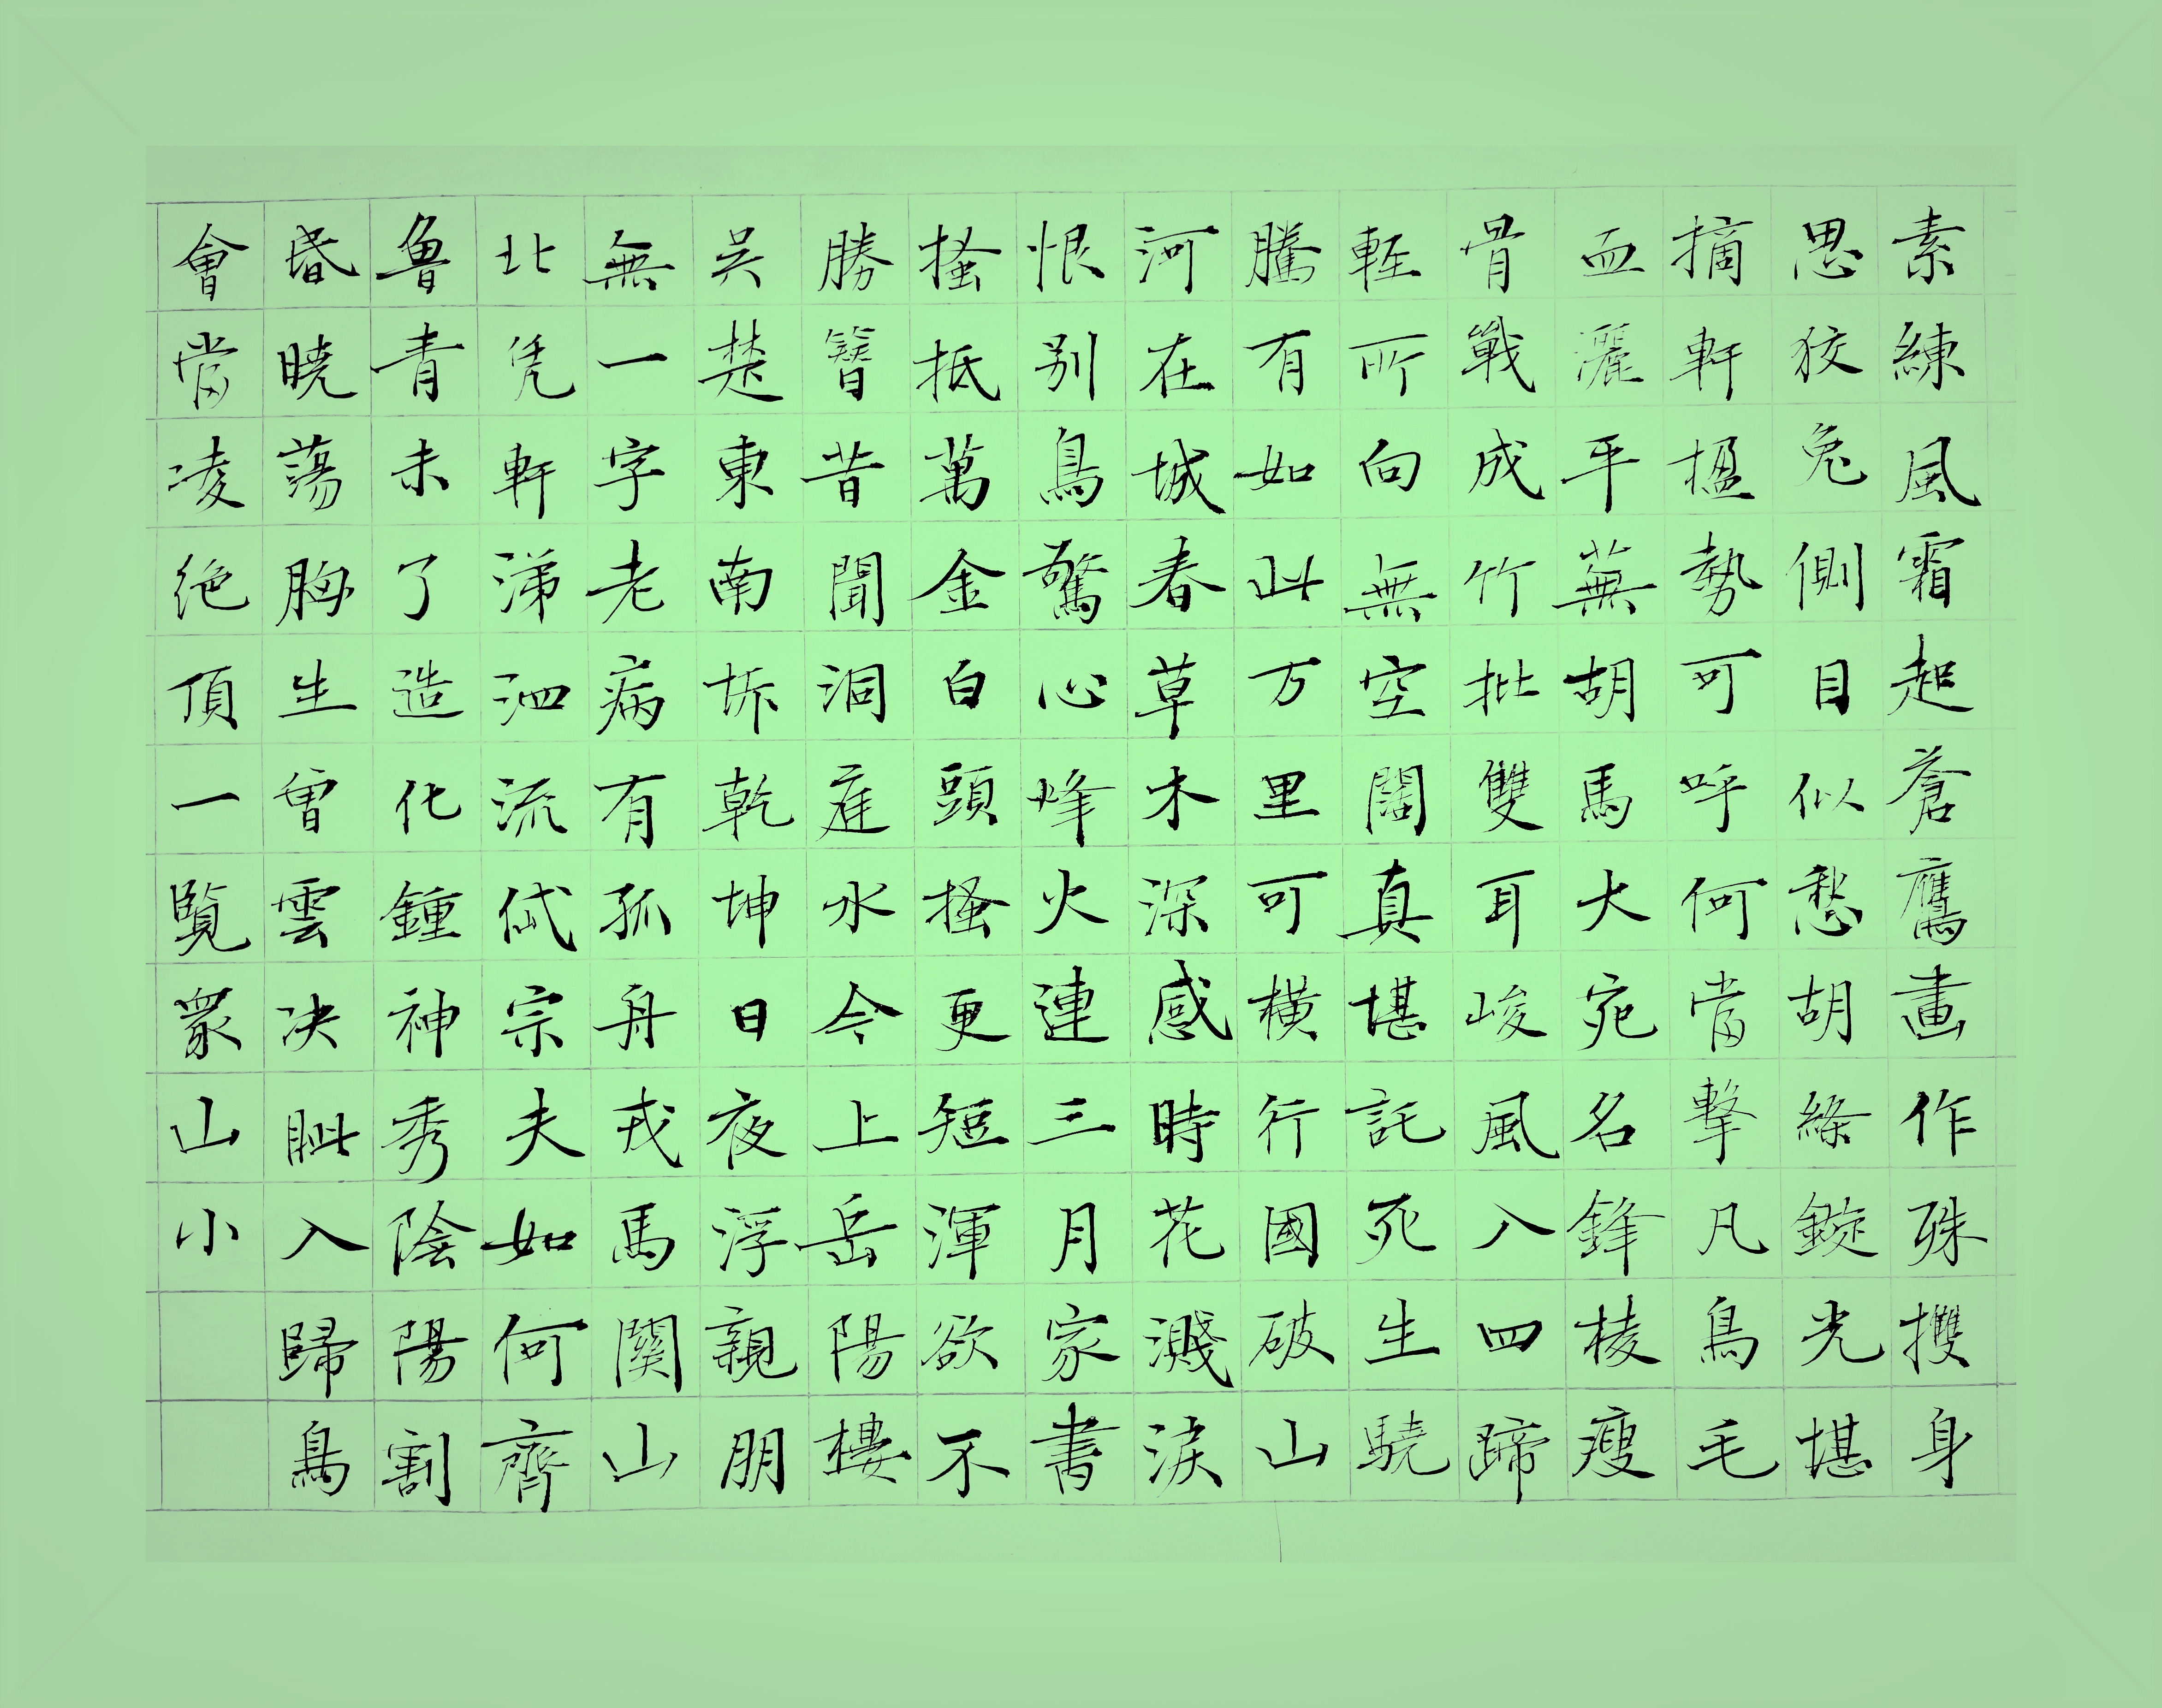 素練風霜起蒼鷹畫作殊㩳身
思狡兔側目似愁胡絛鏇光堪
摘軒楹勢可呼何當擊凡鳥毛
血灑平蕪胡馬大宛名鋒棱瘦
骨戰成竹批雙耳峻風入四蹄
輊所向無空闊真堪託死生驍
騰有如此万里可橫行國破山
河在城春草木深感時花濺淚
恨别鳥驚心烽火連三月家書
搔抵萬金白頭搔更短渾欲不
勝簪昔聞洞庭水今上岳陽樓
吳楚東南坼乾坤日夜浮親朋
無一字老病有孤舟戎馬關山
北凭軒涕泗流岱宗夫如何齊
魯青未了造化鍾神秀陰陽割
昏曉蕩胸生曾雲决眥入歸鳥
會當凌絕頂一覽眾山小